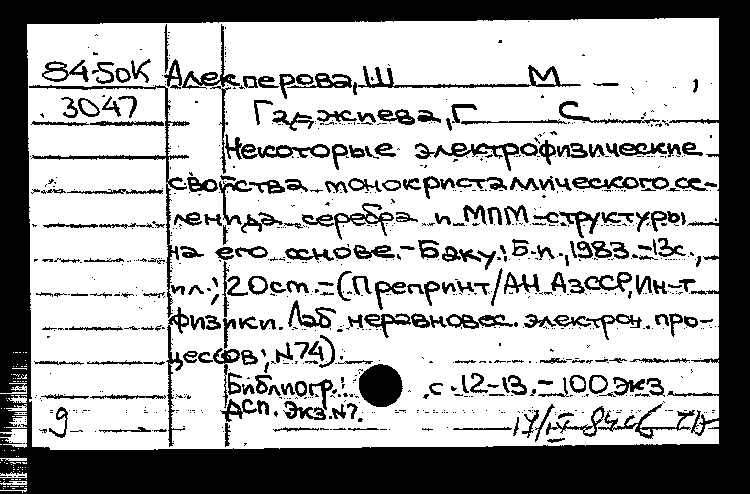 84-50К Алекперова, Ш М ,
3047 Гаджиева, Г С
Некоторые электрофизические
свойства монокристаллического се-
ленида серебра и МПМ-структуры
на его основе.-Баку: Б.и., 1983.-13с.,
ил.; 20см.-(Препринт/АН АзССР, Ин-т
физики. Лаб. неравновес. электрон. про-
цессов; N74).
Библиогр.: с.12-13.-100экз.
ДСП. Экз.N7.
9